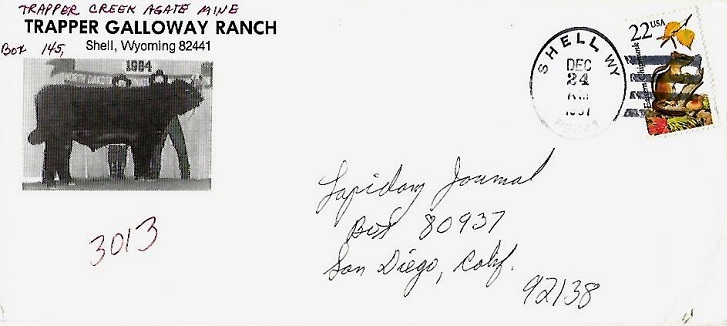 TRAPPER CREEK AGATE MINE
TRAPPER GALLOWAY RANCH
Box 145,
Shell, Wyoming 82441
1984
NORTH DAKOTA
SHELL, WY
DEC
24
AM
1987
82441
22 USA
Eastern Chipmunk
Lapidary Journal
Box 80937
San Diego, Calif.
92138
3013